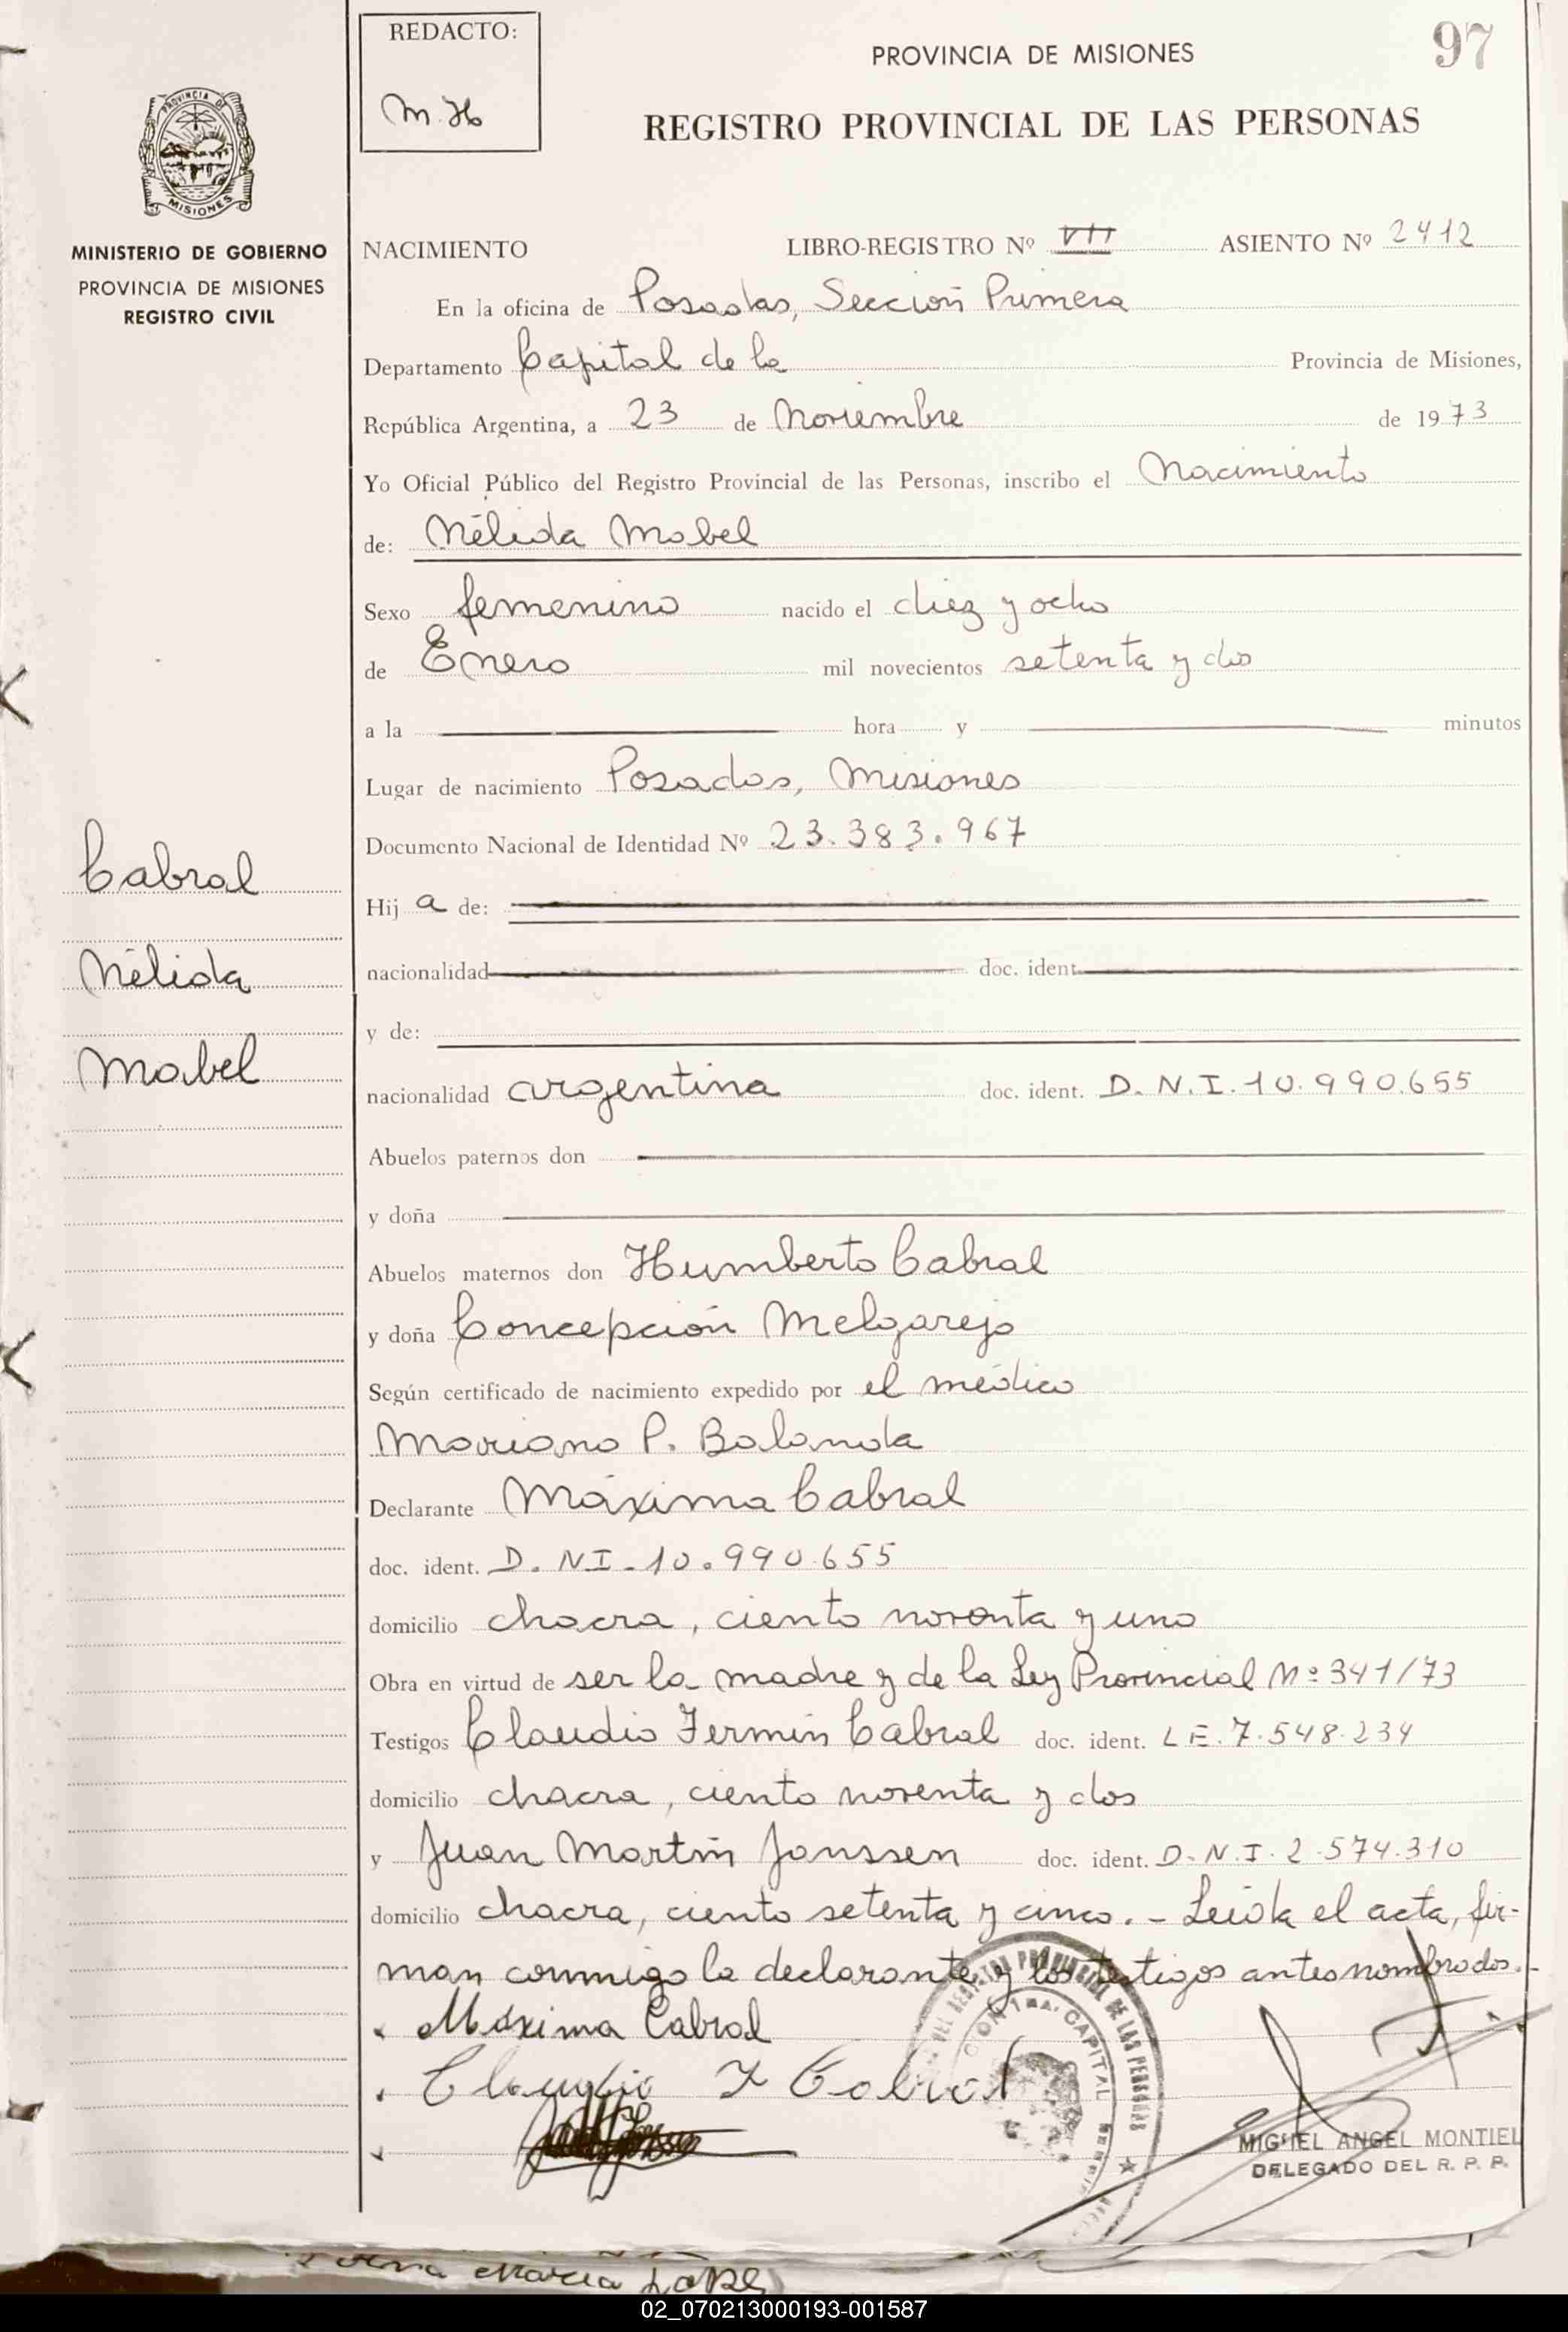 REDACTO:
M. H
PROVINCIA DE MISIONES
97
REGISTRO PROVINCIAL DE LAS PERSONAS
PROVINCIA DE
MISIONES
MINISTERIO DE GOBIERNO
PROVINCIA DE MISIONES
REGISTRO CIVIL
NACIMIENTO LIBRO-REGISTRO Nº VII ASIENTO Nº 2412
En la oficina de Posadas, Sección Primera
Departamento Capital de la Provincia de Misiones,
República Argentina, a 23 de Noviembre de 1973
Yo Oficial Público del Registro Provincial de las Personas, inscribo el Nacimiento
de: Nélida Mabel
Sexo femenino nacido el diez y ocho
de Enero mil novecientos setenta y dos
a la hora y minutos
Lugar de nacimiento Posadas, Misiones
Documento Nacional de Identidad Nº 23.383.967
Cabral
Nélida
Mabel
Hij a de:
nacionalidad doc. ident.
y de:
nacionalidad argentina doc. ident. D.N.I. 10.990.655
Abuelos paternos don
y doña
Abuelos maternos don Humberto Cabral
y doña Concepción Melgarejo
Según certificado de nacimiento expedido por el médico
Mariano P. Balanda
Declarante Máxima Cabral
doc. ident. D.NI-10.990.655
domicilio chacra, ciento noventa y uno
Obra en virtud de ser la madre y de la Ley Provincial Nº 341/73
Testigos Claudio Fermín Cabral doc. ident. L E. 7.548.234
domicilio chacra, ciento noventa y dos
y Juan Martín Janssen doc. ident. D.N.I. 2.574.310
domicilio chacra, ciento setenta y cinco.- Leída el acta, fir-
man conmigo la declarante y los testigos antes nombrados.-
Máxima Cabral
Claudio F Cabral
DEL REGISTRO PROVINCIAL DE LAS PERSONAS
CAPITAL
MIGUEL ANGEL MONTIEL
DELEGADO DEL R. P. P.
María
02_070213000193-001587